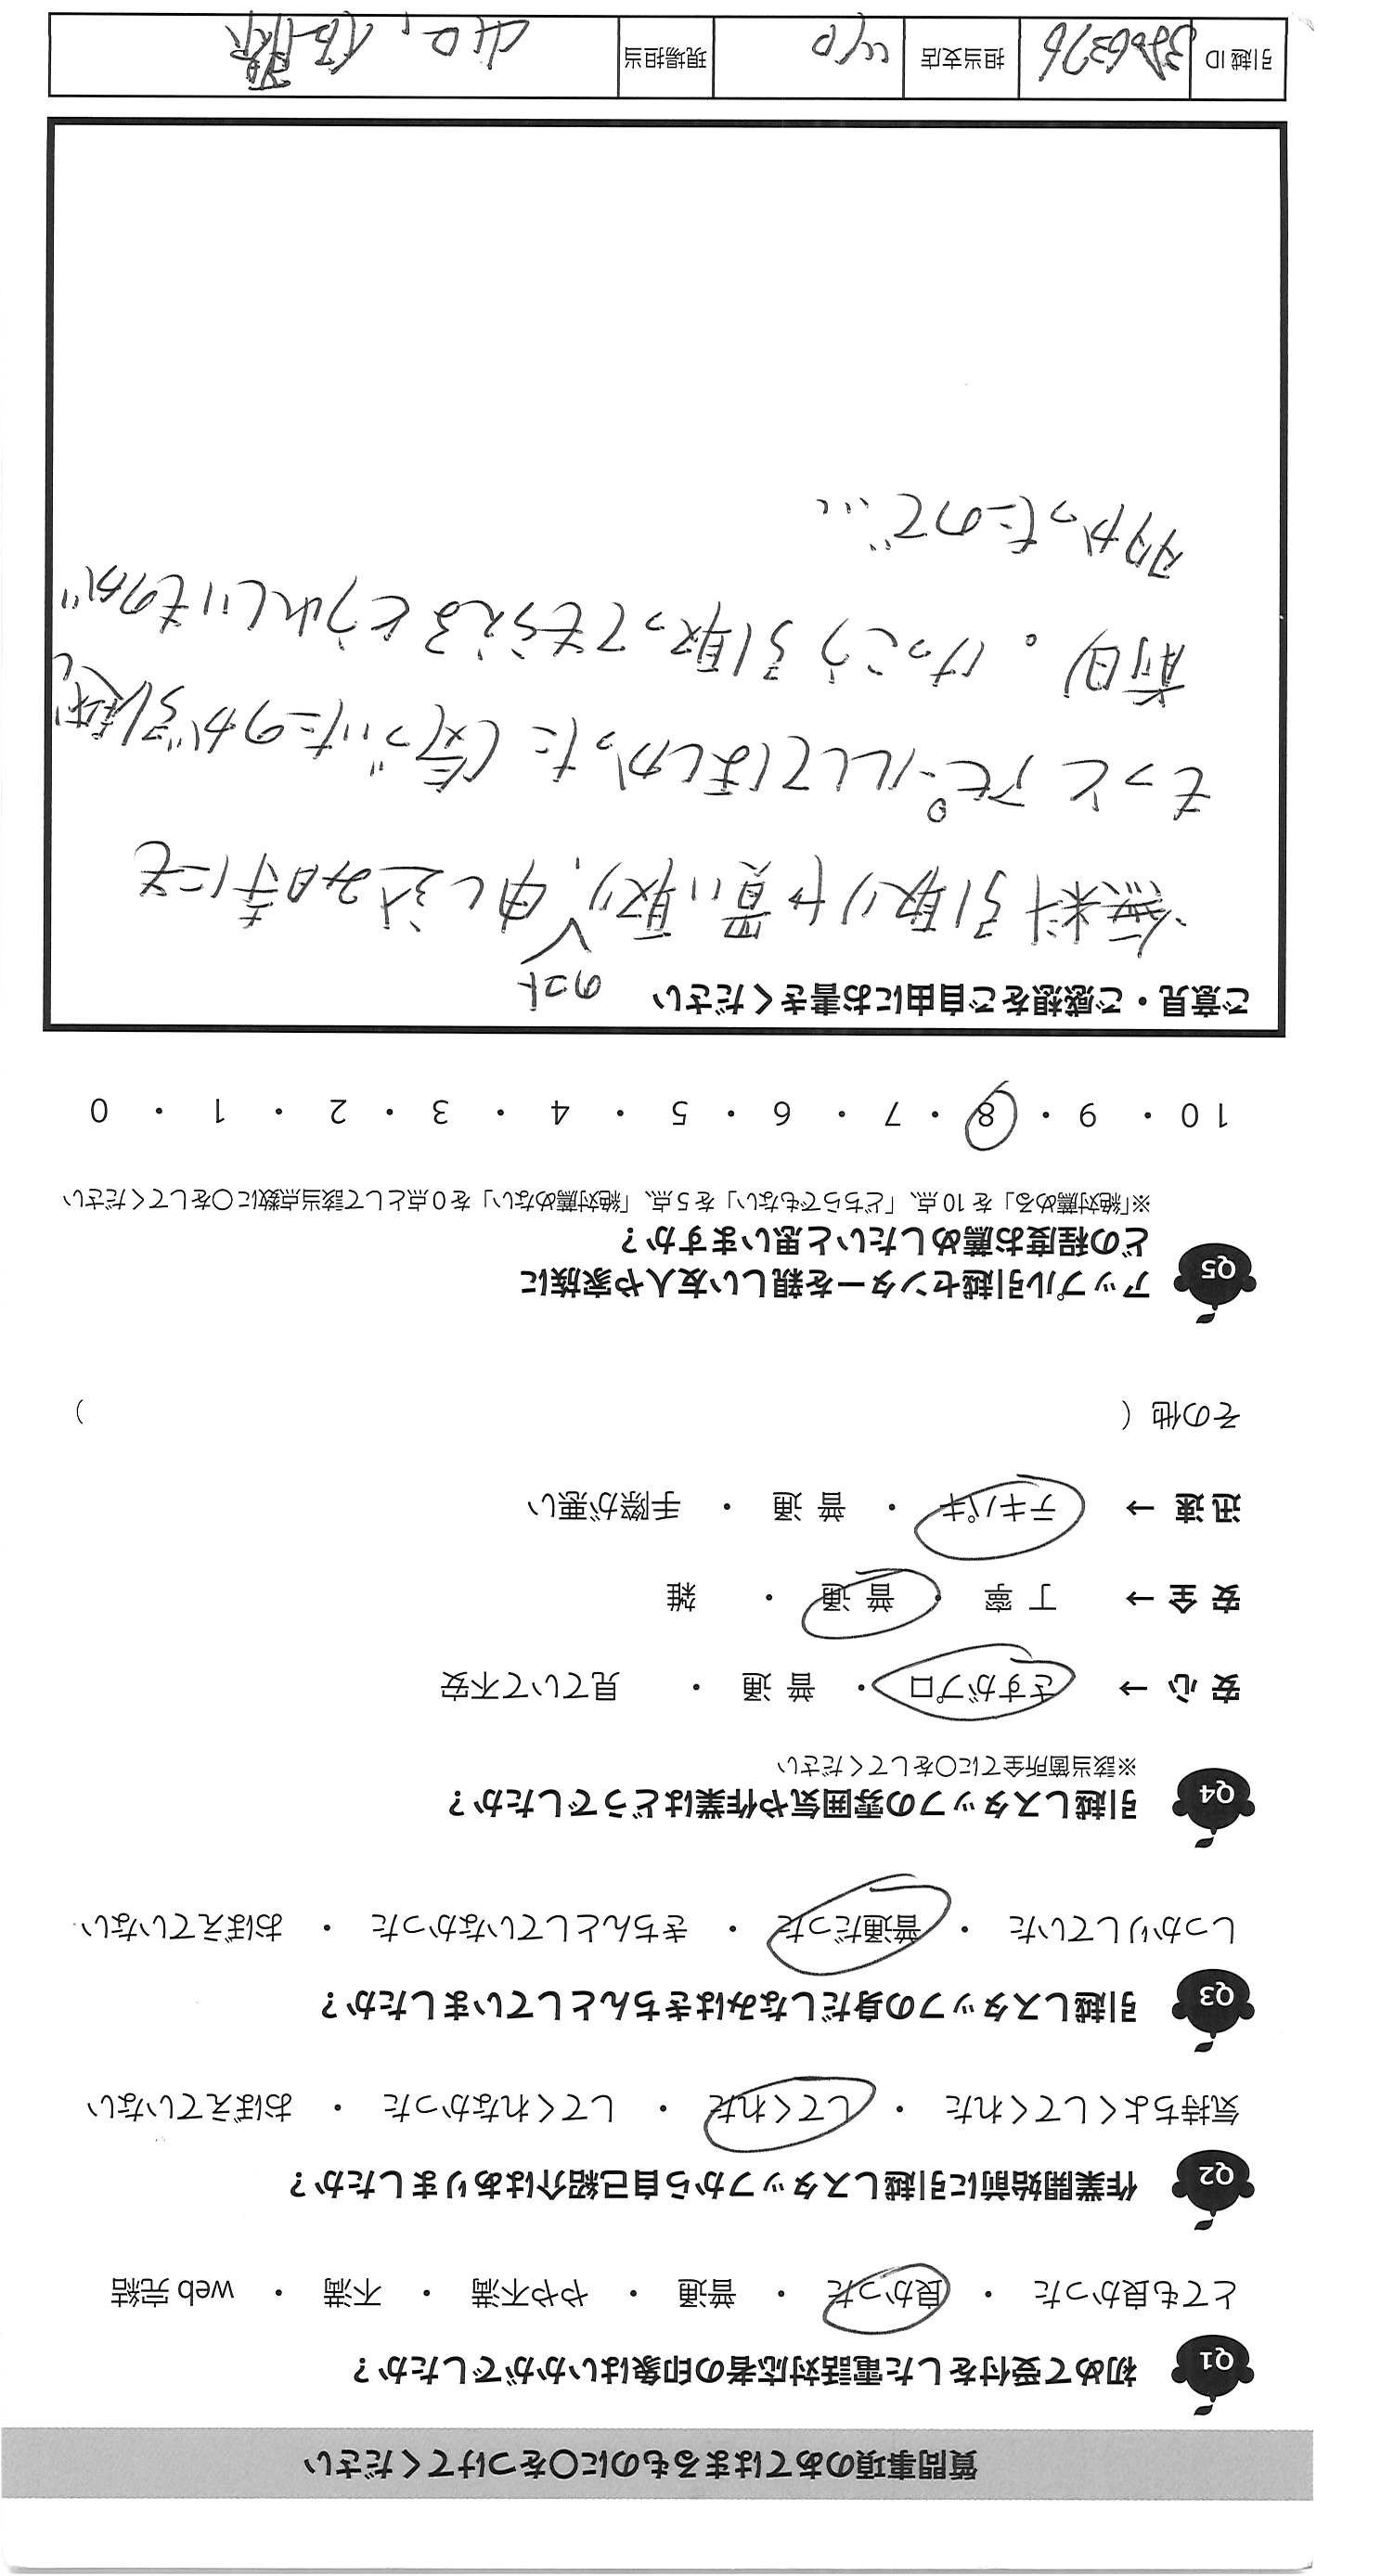 質問事項のあてはまるものに〇をつけてください
Q1 初めて受付をした電話対応者の印象はいかがでしたか？
とても良かった ・ 良かった ・ 普通 ・ やや不満 ・ 不満 ・ web 完結
Q2 作業開始前に引越しスタッフから自己紹介はありましたか？
気持ちよくしてくれた ・ してくれた ・ してくれなかった ・ おぼえていない
Q3 引越しスタッフの身だしなみはきちんとしていましたか？
しっかりしていた ・ 普通だった ・ きちんとしていなかった ・ おぼえていない
Q4 引越しスタッフの雰囲気や作業はどうでしたか？
※該当箇所全てに〇をしてください
安 心 → さすがプロ ・ 普 通 ・ 見ていて不安
安 全 → 丁 寧 ・ 普 通 ・ 雑
迅 速 → テキパキ ・ 普 通 ・ 手際が悪い
その他（ ）
Q5 アップル引越センターを親しい友人や家族に
どの程度お薦めしたいと思いますか？
※「絶対薦める」を 10 点、「どちらでもない」を 5 点、「絶対薦めない」を 0 点として該当点数に〇をしてください
10 ・ 9 ・ 8 ・ 7 ・ 6 ・ 5 ・ 4 ・ 3 ・ 2 ・ 1 ・ 0
ご意見・ご感想をご自由にお書きください
のコト
無料引取りや買い取り、申し込み時にも
もっとアピールしてほしかった（気づいたのが引越し
前日）。けっこう引取ってもらえるとうれしいものが
多かったので…
引越 ID 担当支店 現場担当